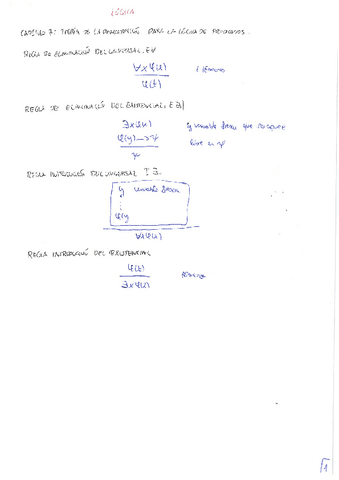 LÓGICA
CAPÍTULO 7: TEORÍA DE LA DEMOSTRACIÓN PARA LA LÓGICA DE PREDICADOS.
REGLA DE ELIMINACIÓ DEL UNIVERSAL. E∀
∀xφ(x)
φ(t)
t término
REGLA DE ELIMINACIÓ DEL EXISTENCIAL. E∃
∃xφ(x)
φ(y) → ψ
ψ
y variable fresca que no aparece
libre en ψ
REGLA INTRODUCCIÓ DEL UNIVERSAL I∃.
y variable fresca
⋮
φ(y
∀xφ(x)
REGLA INTRODUCCIÓ DEL EXISTENCIAL
φ(t)
∃xφ(x)
término
1